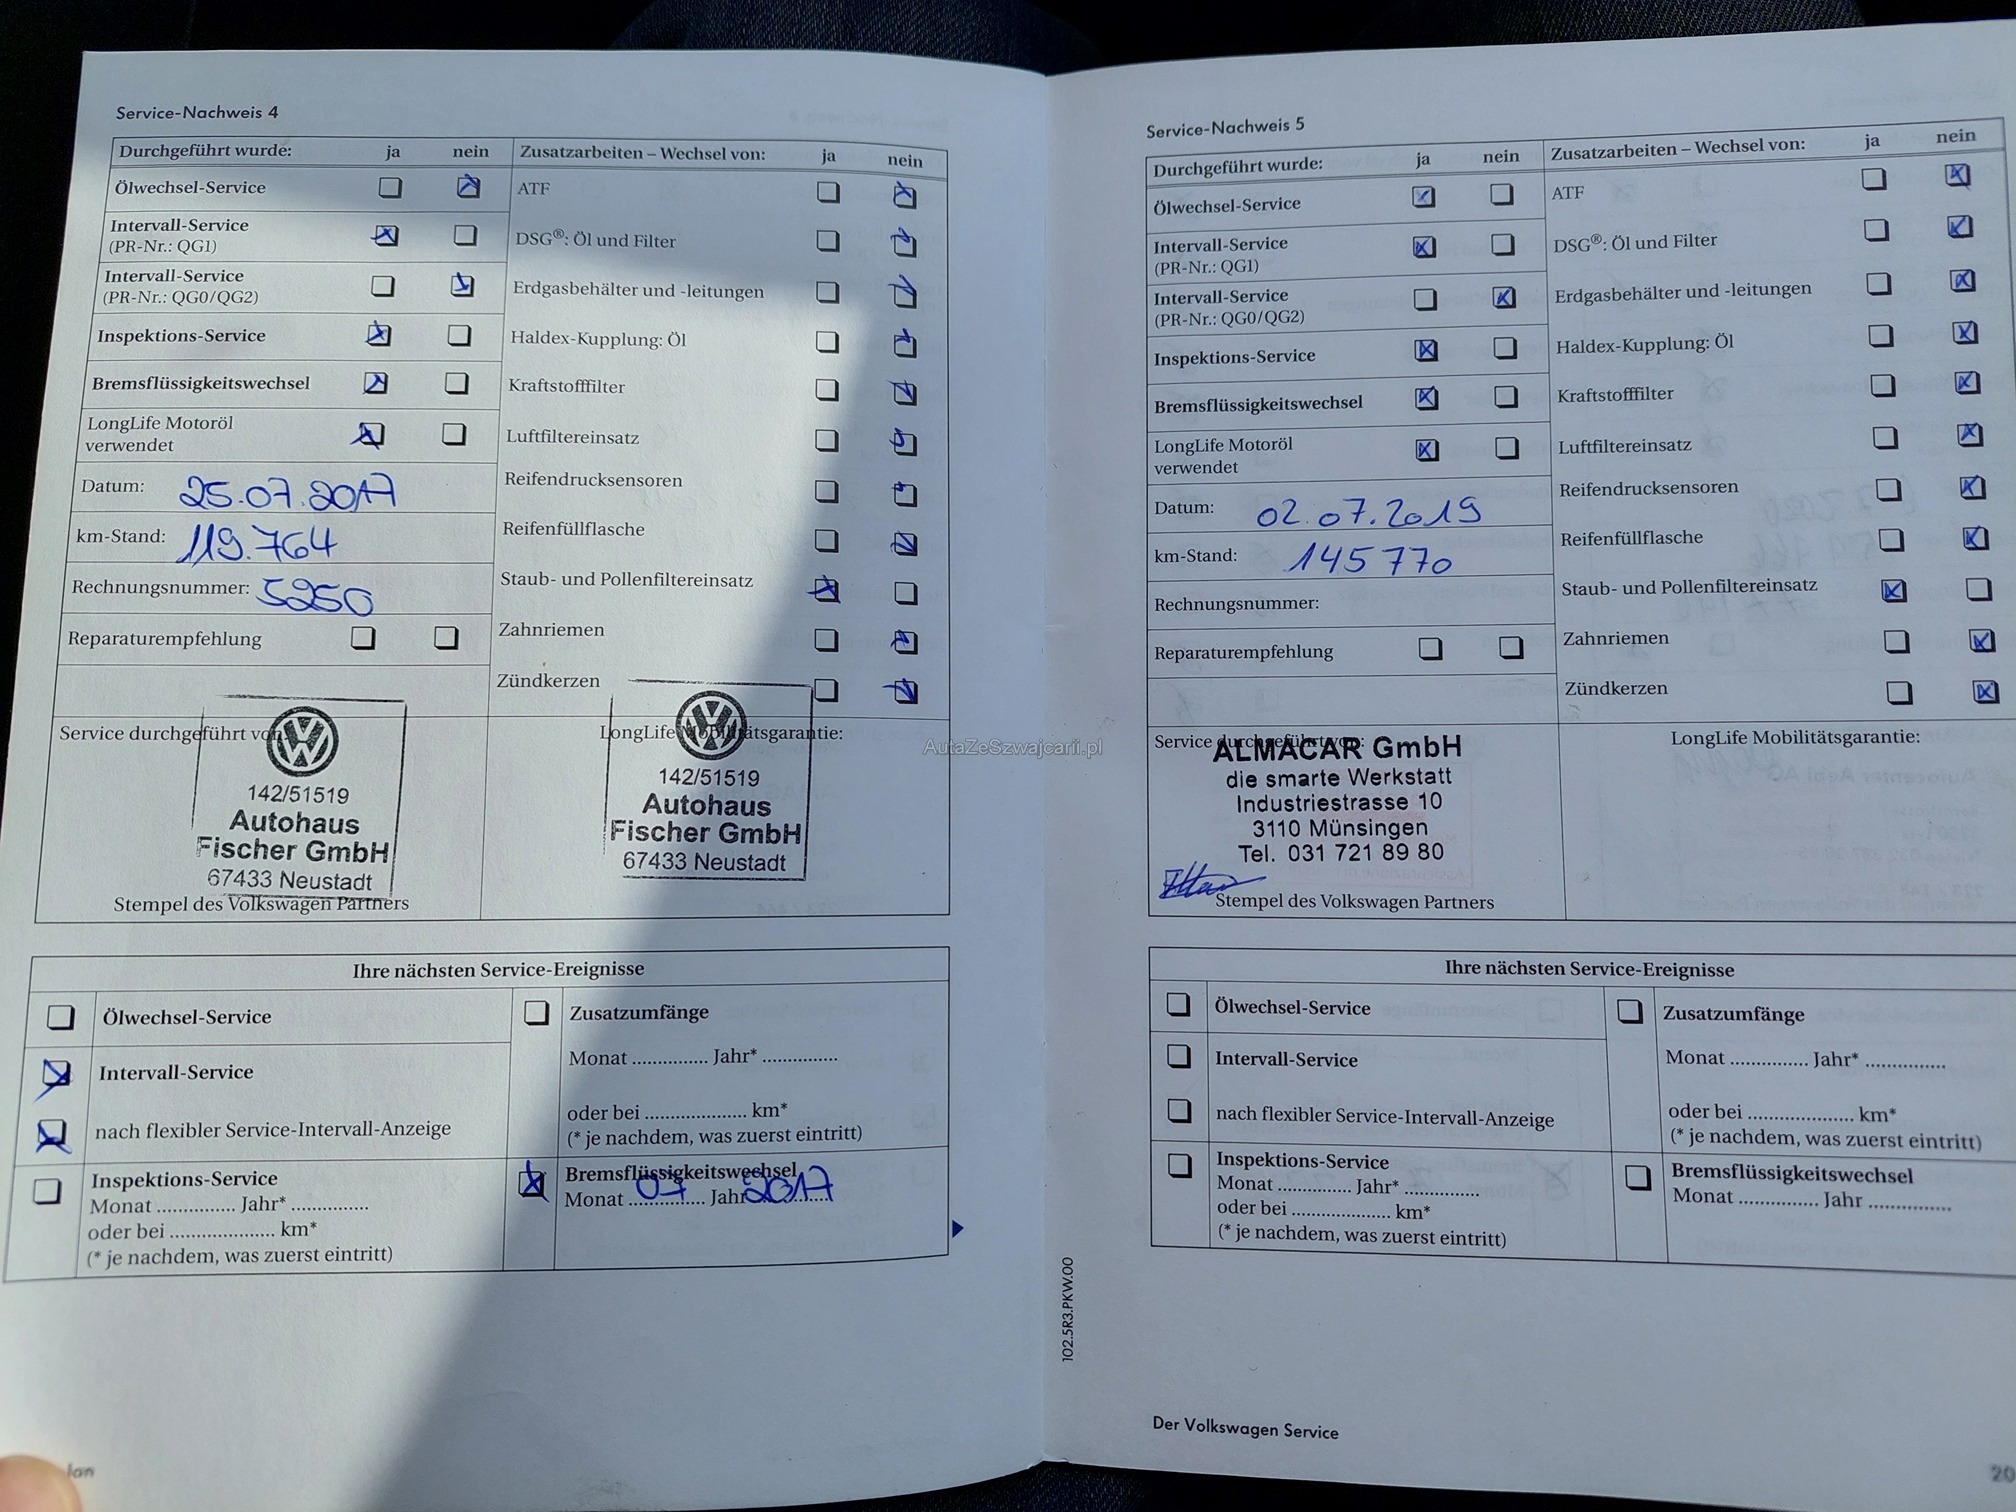 Service-Nachweis 4
Durchgeführt wurde: ja nein
Ölwechsel-Service
Intervall-Service
(PR-Nr.: QG1)
Intervall-Service
(PR-Nr.: QG0/QG2)
Inspektions-Service
Bremsflüssigkeitswechsel
LongLife Motoröl
verwendet
Datum: 25.07.2017
km-Stand: 119.764
Rechnungsnummer: 5250
Reparaturempfehlung
Zusatzarbeiten – Wechsel von: ja nein
ATF
DSG®: Öl und Filter
Erdgasbehälter und -leitungen
Haldex-Kupplung: Öl
Kraftstofffilter
Luftfiltereinsatz
Reifendrucksensoren
Reifenfüllflasche
Staub- und Pollenfiltereinsatz
Zahnriemen
Zündkerzen
Service durchgeführt von:
142/51519
Autohaus
Fischer GmbH
67433 Neustadt
Stempel des Volkswagen Partners
LongLife Mobilitätsgarantie:
142/51519
Autohaus
Fischer GmbH
67433 Neustadt
Ihre nächsten Service-Ereignisse
Ölwechsel-Service
Intervall-Service
nach flexibler Service-Intervall-Anzeige
Inspektions-Service
Monat ............... Jahr* ..............
oder bei .................... km*
(* je nachdem, was zuerst eintritt)
Zusatzumfänge
Monat .............. Jahr* ..............
oder bei .................... km*
(* je nachdem, was zuerst eintritt)
Bremsflüssigkeitswechsel
Monat 07 Jahr 2017
lan
Service-Nachweis 5
Durchgeführt wurde: ja nein
Ölwechsel-Service
Intervall-Service
(PR-Nr.: QG1)
Intervall-Service
(PR-Nr.: QG0/QG2)
Inspektions-Service
Bremsflüssigkeitswechsel
LongLife Motoröl
verwendet
Datum: 02.07.2019
km-Stand: 145770
Rechnungsnummer:
Reparaturempfehlung
Zusatzarbeiten – Wechsel von: ja nein
ATF
DSG®: Öl und Filter
Erdgasbehälter und -leitungen
Haldex-Kupplung: Öl
Kraftstofffilter
Luftfiltereinsatz
Reifendrucksensoren
Reifenfüllflasche
Staub- und Pollenfiltereinsatz
Zahnriemen
Zündkerzen
Service durchgeführt von:
ALMACAR GmbH
die smarte Werkstatt
Industriestrasse 10
3110 Münsingen
Tel. 031 721 89 80
Stempel des Volkswagen Partners
LongLife Mobilitätsgarantie:
Ihre nächsten Service-Ereignisse
Ölwechsel-Service
Intervall-Service
nach flexibler Service-Intervall-Anzeige
Inspektions-Service
Monat .............. Jahr* ..............
oder bei .................... km*
(* je nachdem, was zuerst eintritt)
Zusatzumfänge
Monat .............. Jahr* ...............
oder bei .................... km*
(* je nachdem, was zuerst eintritt)
Bremsflüssigkeitswechsel
Monat ............... Jahr ...............
102.5R3.PKW.00
Der Volkswagen Service
20
AutaZeSzwajcarii.pl